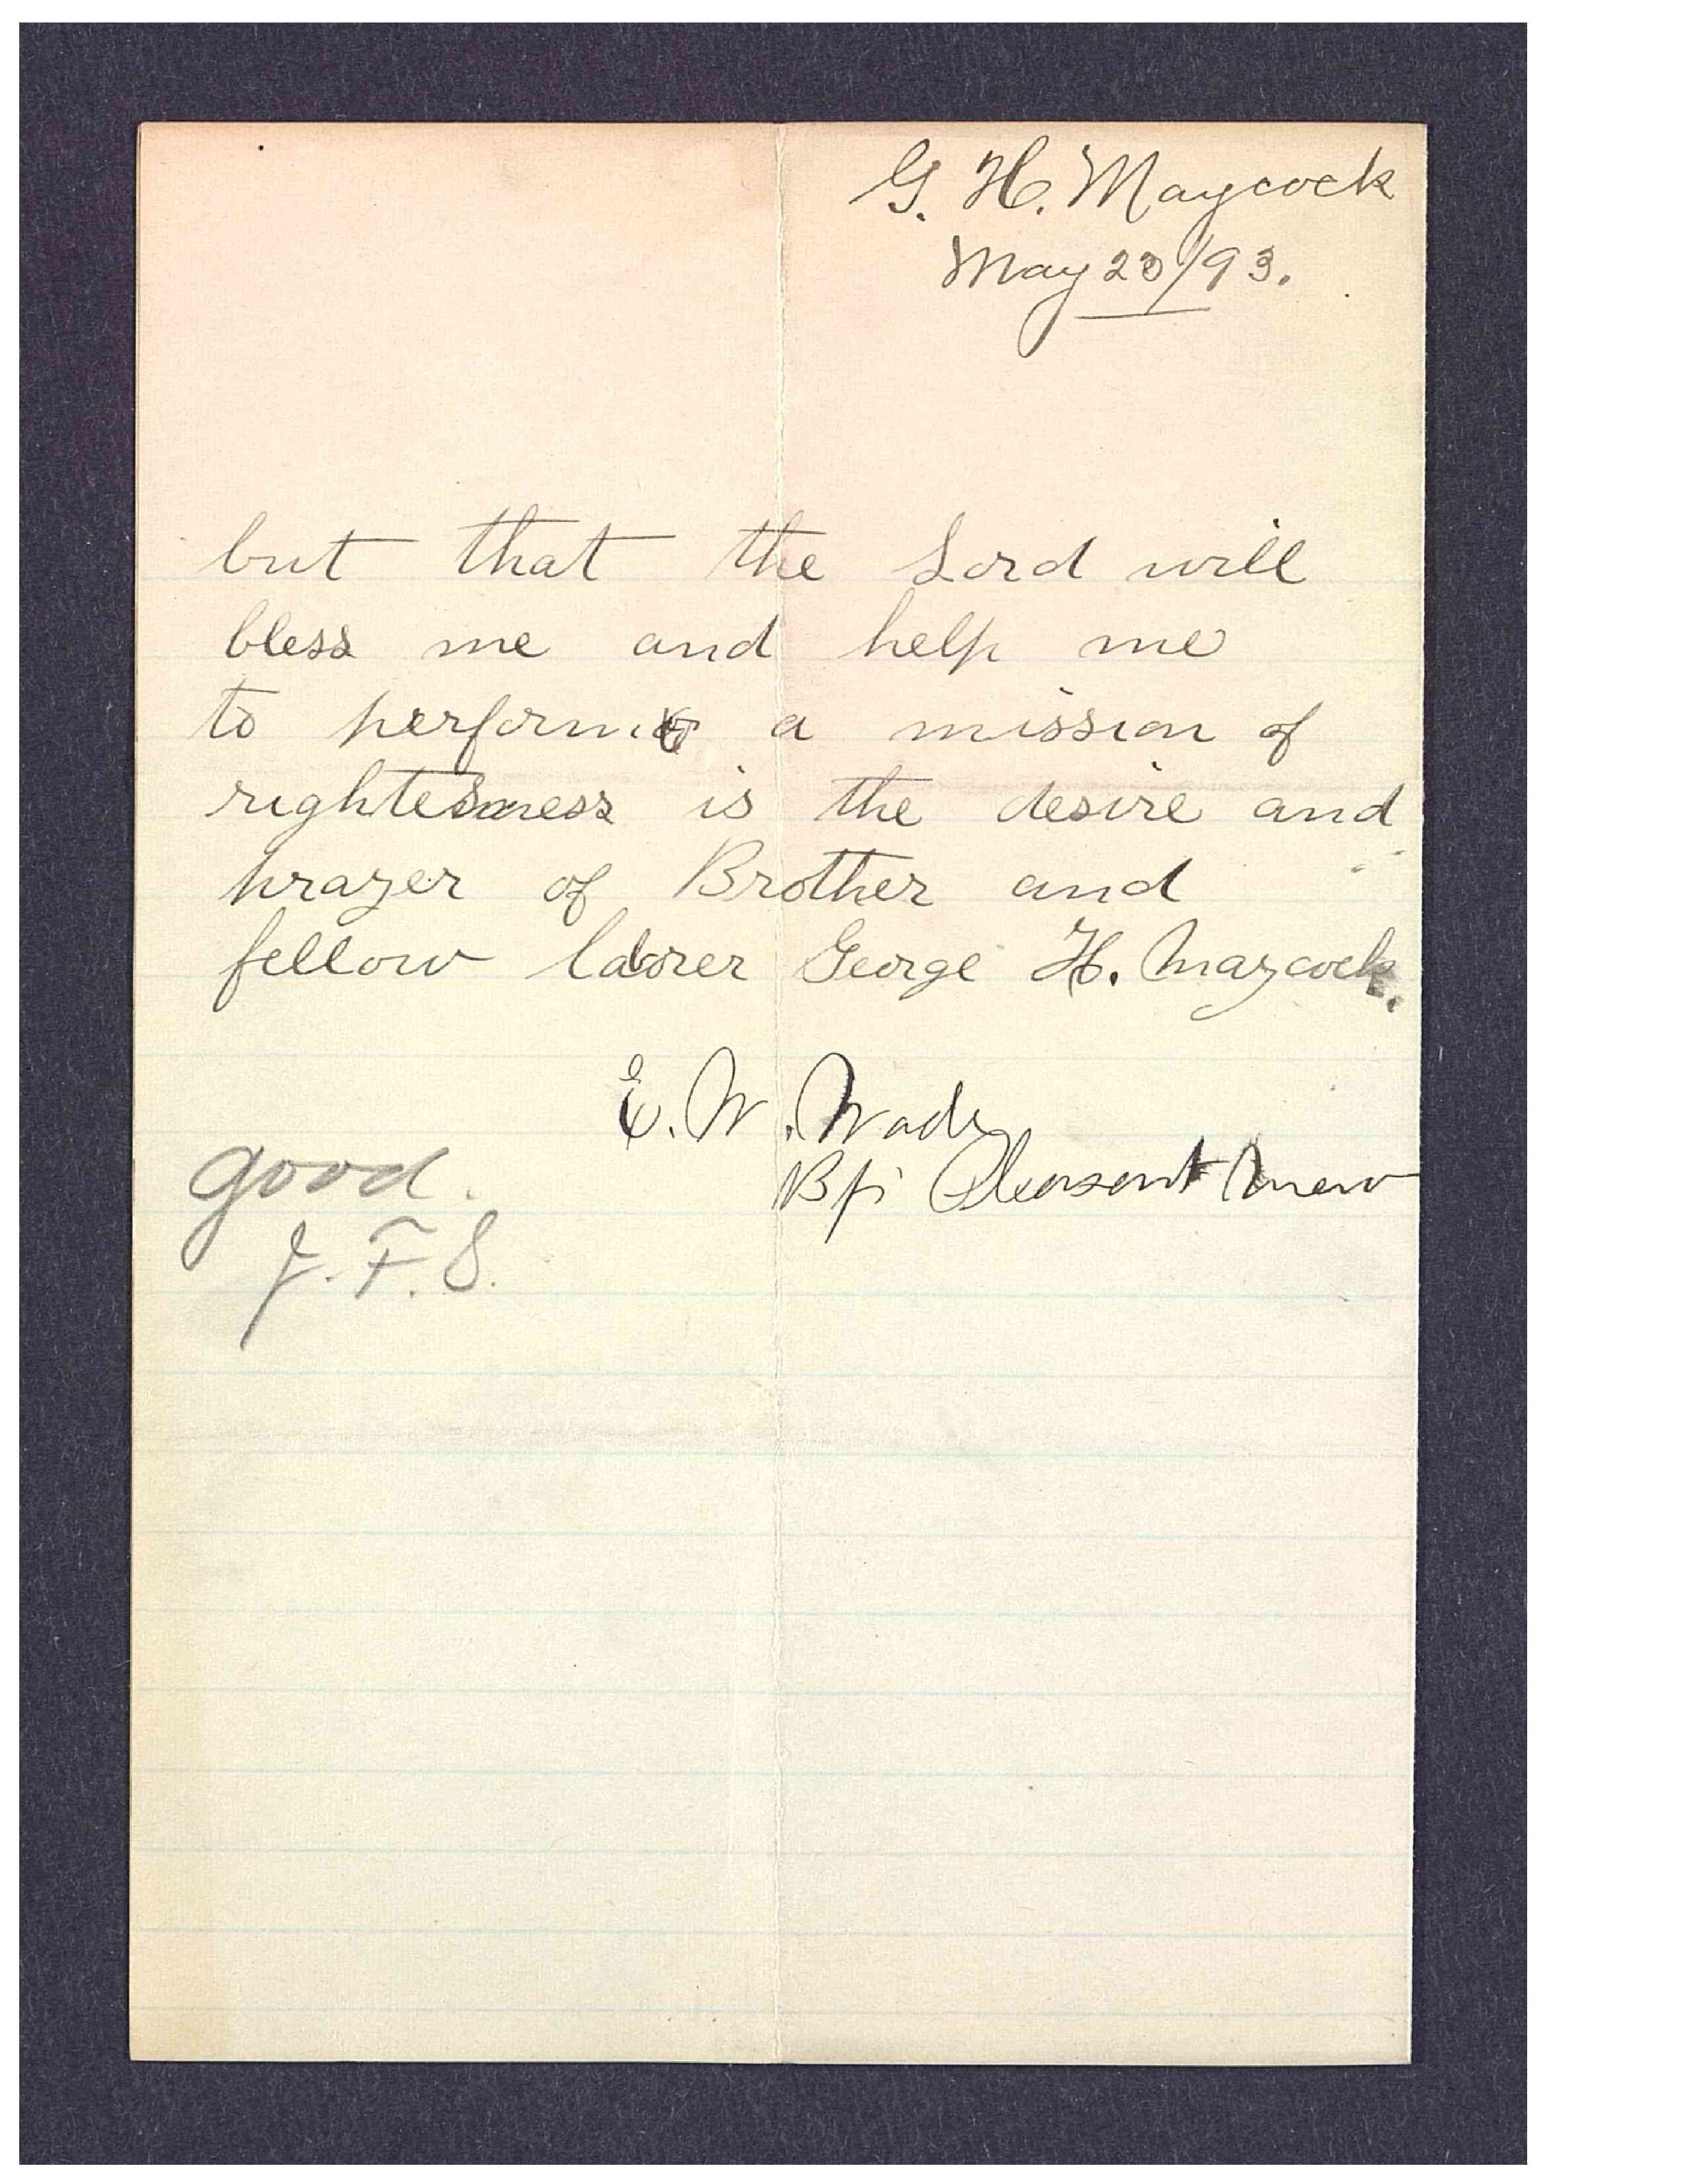 G. H. Maycock
May 23/93.
but that the Lord will
bless me and help me
to perform a mission of
righteousness is the desire and
prayer of Brother and
fellow laborer George H. Maycock.
E. W. Wade
Bp Pleasant View
good.
J. F. S.